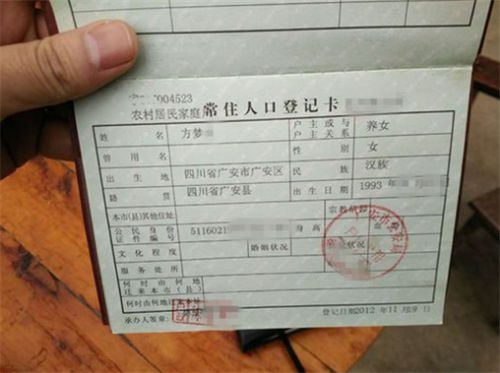 004523
农村居民家庭 常住人口登记卡
姓名 方梦 户主或与户主关系 养女
曾用名 性别 女
出生地 四川省广安市广安区 民族 汉族
籍贯 四川省广安县 出生日期 1993
本市(县)其他住址 宗教信仰
公民身份证件编号 5116021 身高
文化程度 婚姻状况
服务处所
何时由何地迁来本市(县)
何时由何地迁来本址
承办人签章: 登记日期:2012 年 11 月 9 日